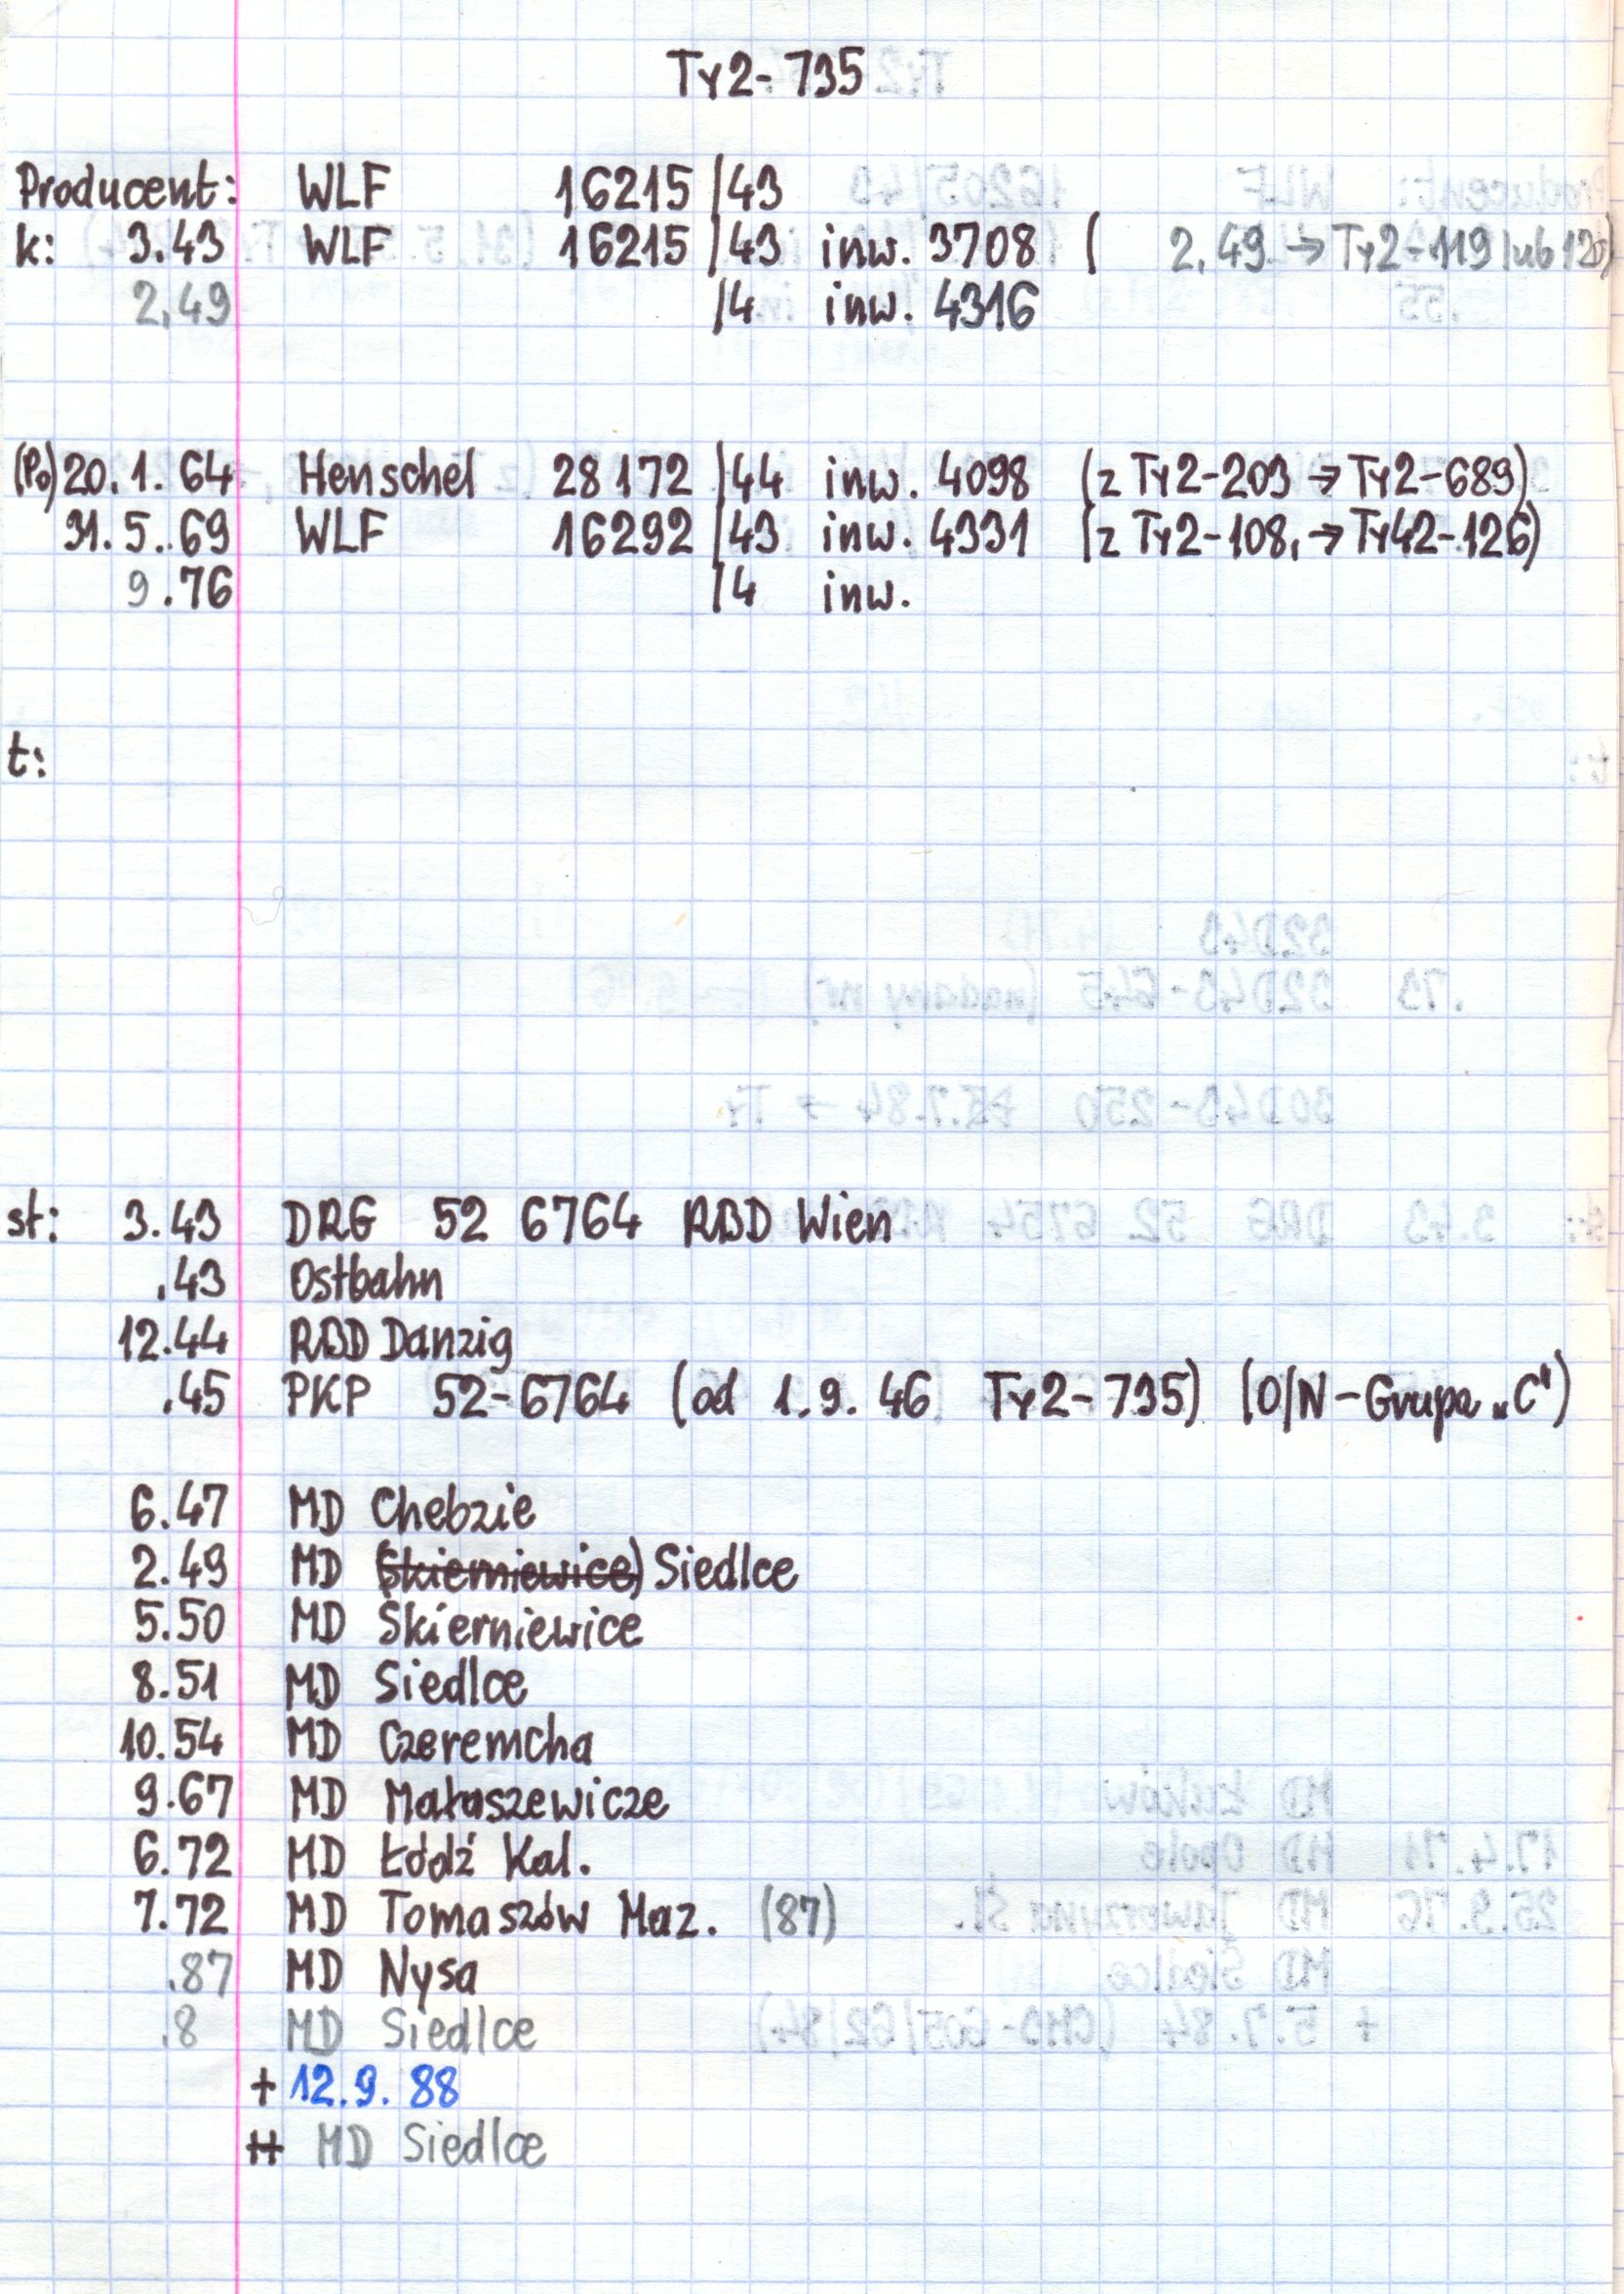 Ty2-735
Producent: WLF 16215/43
k: 3.43 WLF 16215/43 inw. 3708 ( 2.49 → Ty2-119 lub 120)
2.49 /4 inw. 4316
(Po) 20.1.64 Henschel 28172/44 inw. 4098 (z Ty2-203 → Ty2-689)
31.5.69 WLF 16292/43 inw. 4331 (z Ty2-108, → Ty42-126)
9.76 /4 inw.
t:
st: 3.43 DRG 52 6764 RBD Wien
.43 Ostbahn
12.44 RBD Danzig
.45 PKP 52-6764 (od 1.9.46 Ty2-735) (O/N-Grupa „C")
6.47 MD Chebzie
2.49 MD (Skierniewice) Siedlce
5.50 MD Skierniewice
8.51 MD Siedlce
10.54 MD Czeremcha
9.67 MD Małaszewicze
6.72 MD Łódź Kal.
7.72 MD Tomaszów Maz. (87)
.87 MD Nysa
.8 MD Siedlce
+ 12.9.88
++ MD Siedlce